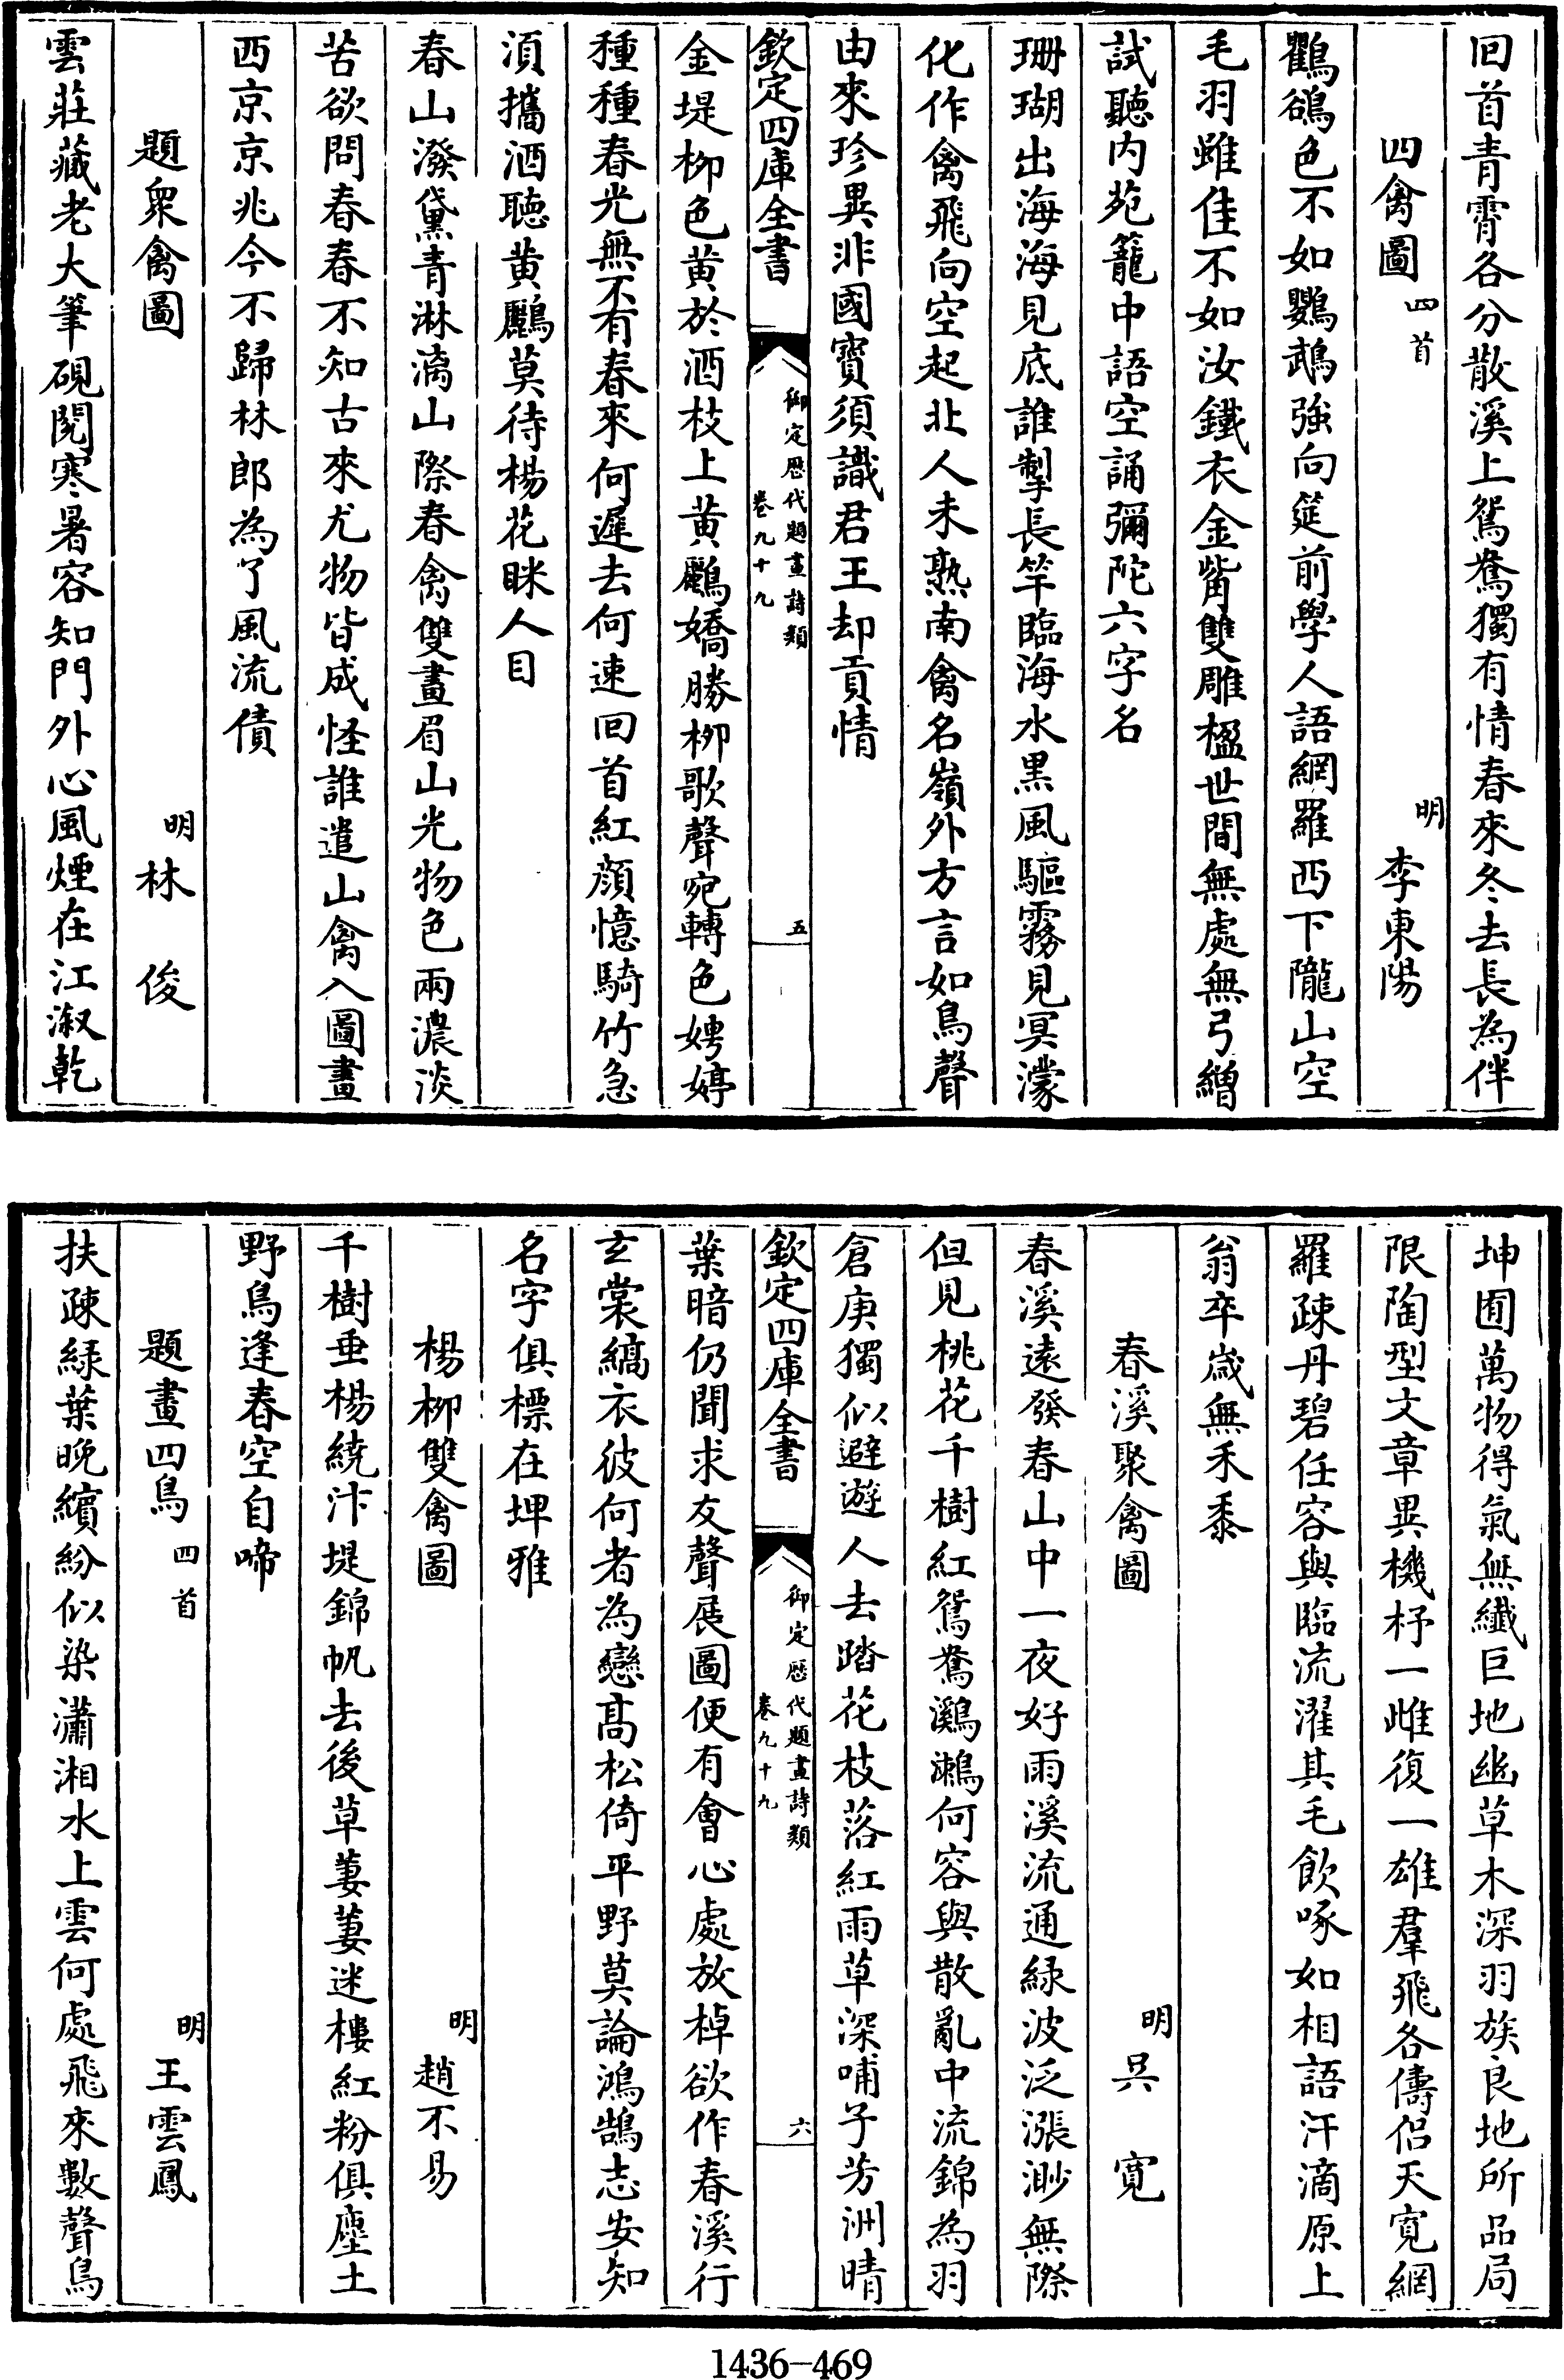 回首青霄各分散溪上鴛鴦獨有情春來冬去長為伴
四禽圖四首 明李東陽
鸜鵒色不如鸚鵡強向筵前學人語網羅西下隴山空
毛羽雖佳不如汝鐵衣金觜雙雕楹世間無處無弓繒
試聽內苑籠中語空誦彌陀六字名
珊瑚出海海見底誰掣長竿臨海水黑風驅霧見冥濛
化作禽飛向空起北人未熟南禽名嶺外方言如鳥聲
由來珍異非國寶須識君王却貢情
欽定四庫全書 御定歷代題畫詩類 卷九十九 五
金堤栁色黄於酒枝上黄鸝嬌勝栁歌聲宛轉色娉婷
種種春光無不有春來何遲去何速回首紅顔憶騎竹急
須攜酒聽黄鸝莫待楊花眯人目
春山潑黛青淋漓山際春禽雙畫眉山光物色兩濃淡
苦欲問春春不知古來尤物皆成怪誰遣山禽入圖畫
西京京兆今不歸林郎為了風流債
題衆禽圖 明林俊
雲莊藏老大筆硯閱寒暑容知門外心風煙在江溆乾
坤囿萬物得氣無纖巨地幽草木深羽族良地所品局
限陶型文章異機杼一雌復一雄羣飛各儔侣天寛網
羅疎丹碧任容與臨流濯其毛飲啄如相語汗滴原上
翁卒歲無禾黍
春溪聚禽圖 明吳寛
春溪遠發春山中一夜好雨溪流通緑波泛漲渺無際
但見桃花千樹紅鴛鴦鸂鶒何容與散亂中流錦為羽
倉庚獨似避遊人去踏花枝落紅雨草深哺子芳洲晴
欽定四庫全書 御定歷代題畫詩類 卷九十九 六
葉暗仍聞求友聲展圖便有會心處放棹欲作春溪行
玄裳縞衣彼何者為戀髙松倚平野莫論鴻鵠志安知
名字俱標在埤雅
楊栁雙禽圖 明趙不易
千樹垂楊繞汴堤錦帆去後草萋萋迷樓紅粉俱塵土
野鳥逢春空自啼
題畫四鳥四首 明王雲鳳
扶疎緑葉晚繽紛似染瀟湘水上雲何處飛來數聲鳥
1436-469